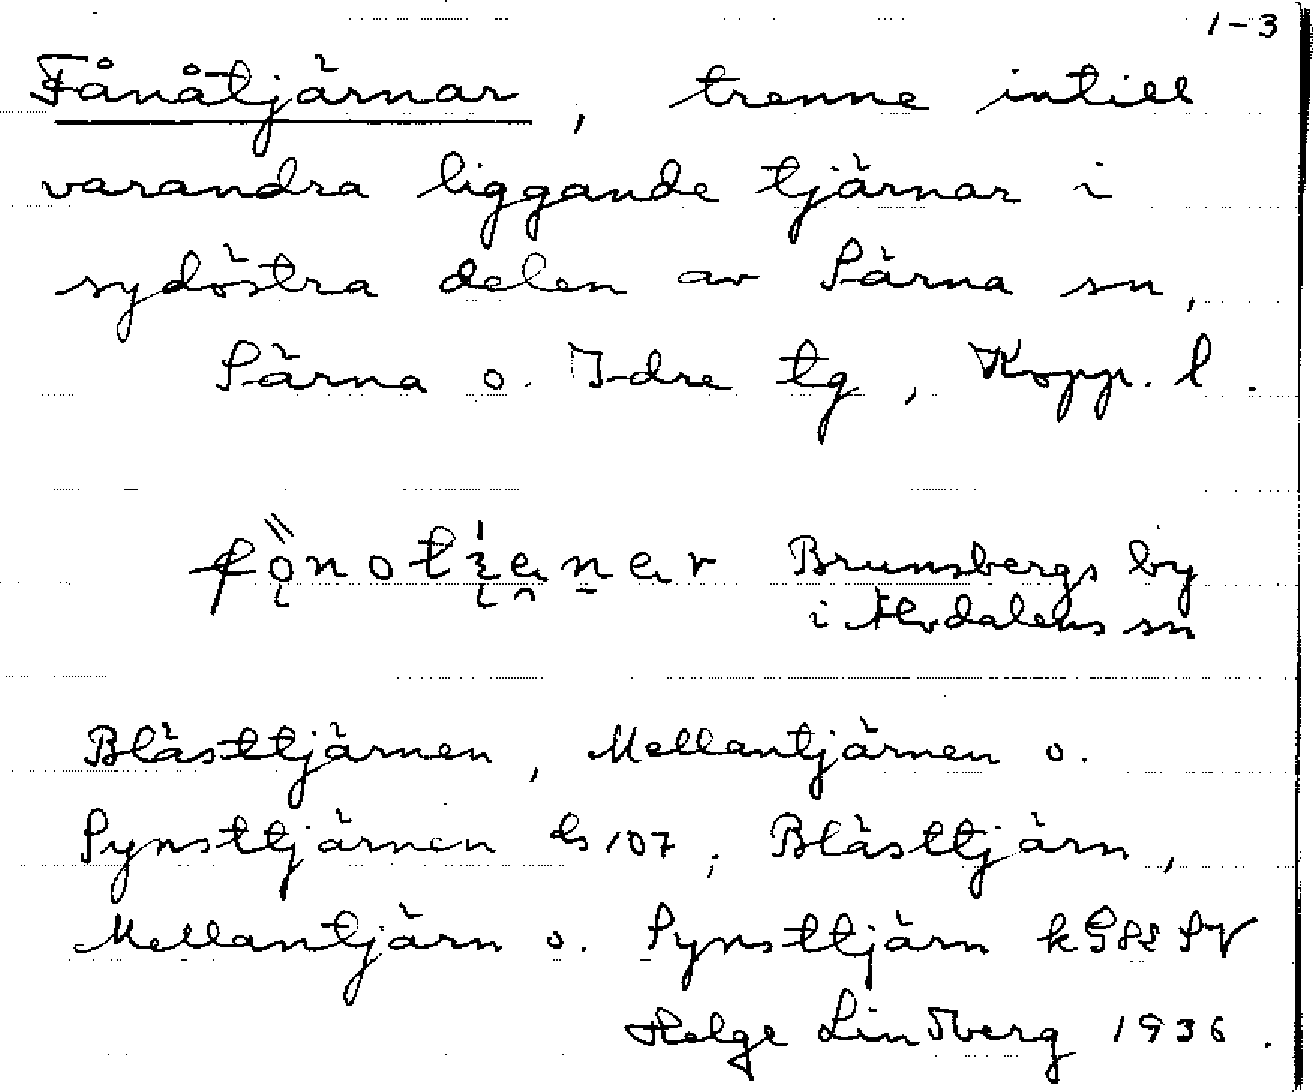 1-3
Fånåtjärnar, trenne intill
varandra liggande tjärnar i
sydöstra delen av Särna sn,
Särna o. Idre tg, Kopp. l.
Brunsbergs by
i Älvdalens sn
Blästtjärnen, Mellantjärnen o.
Synsttjärnen ds 107; Blästtjärn,
Mellantjärn o. Synsttjärn k G 82 SV
Helge Lindberg 1936.